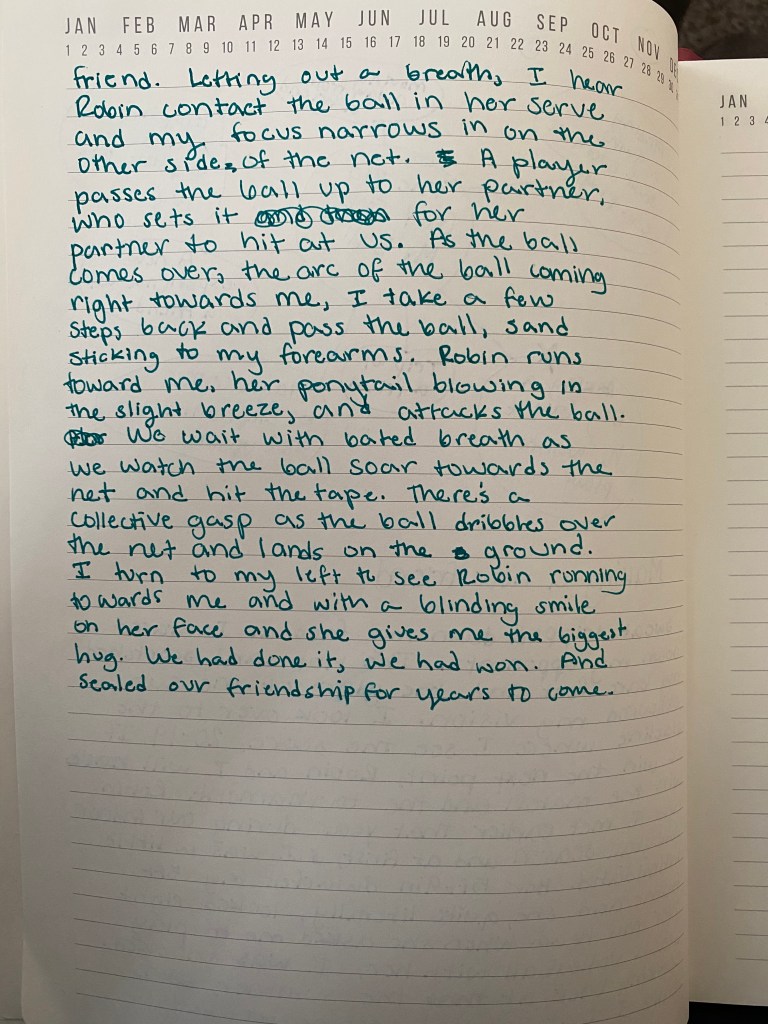 JAN FEB MAR APR MAY JUN JUL AUG SEP OCT NOV
1 2 3 4 5 6 7 8 9 10 11 12 13 14 15 16 17 18 19 20 21 22 23 24 25 26 27 28 29
friend. Letting out a breath, I hear
Robin contact the ball in her serve
and my focus narrows in on the
other side, of the net. A player
passes the ball up to her partner,
who sets it for her
partner to hit at us. As the ball
comes over, the arc of the ball coming
right towards me, I take a few
steps back and pass the ball, sand
sticking to my forearms. Robin runs
toward me, her ponytail blowing in
the slight breeze, and attacks the ball.
We wait with bated breath as
we watch the ball soar towards the
net and hit the tape. There's a
collective gasp as the ball dribbles over
the net and lands on the ground.
I turn to my left to see Robin running
towards me and with a blinding smile
on her face and she gives me the biggest
hug. We had done it, we had won. And
sealed our friendship for years to come.
JAN
1 2 3